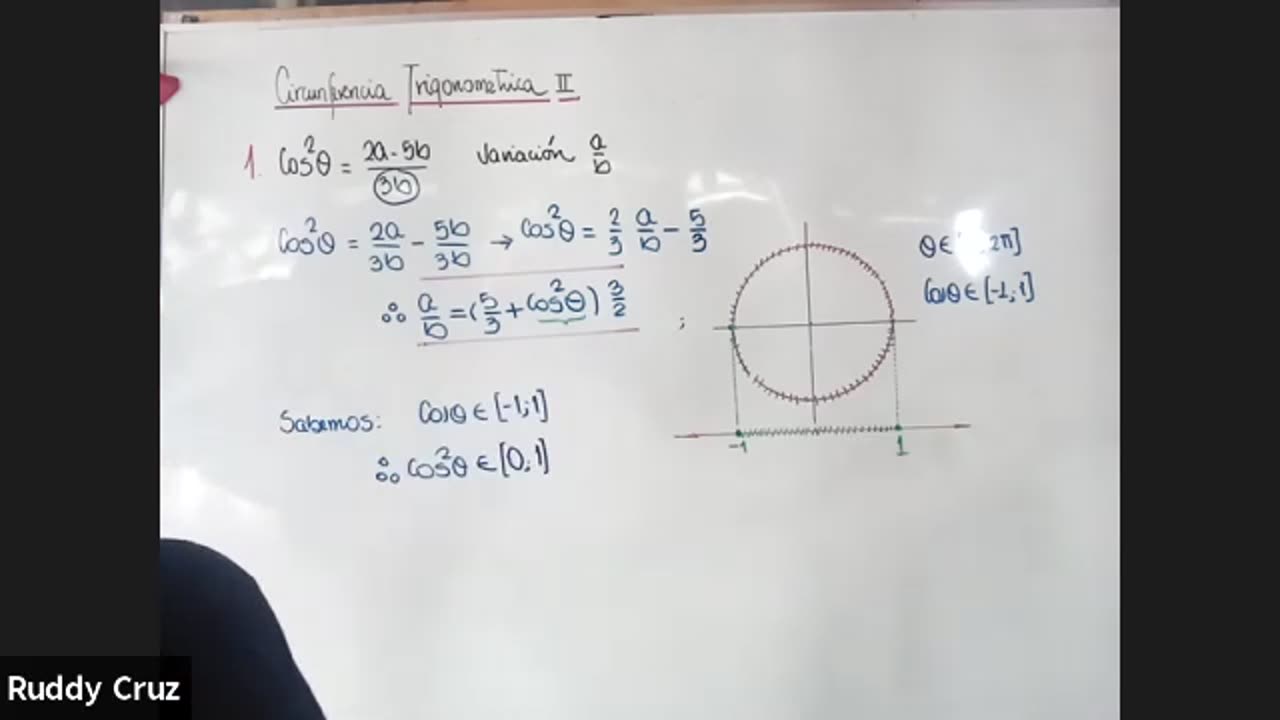 Circunferencia Trigonometrica II
1. Cos²θ = (2a - 5b)/(3b) Variación a/b
Cos²θ = 2a/3b - 5b/3b → Cos²θ = 2/3 a/b - 5/3
∴ a/b = (5/3 + Cos²θ) 3/2 ;
θ ∈ 2π]
Cosθ ∈ [-1; 1]
-1 1
Sabemos: Cosθ ∈ [-1; 1]
∴ Cos²θ ∈ [0; 1]
Ruddy Cruz